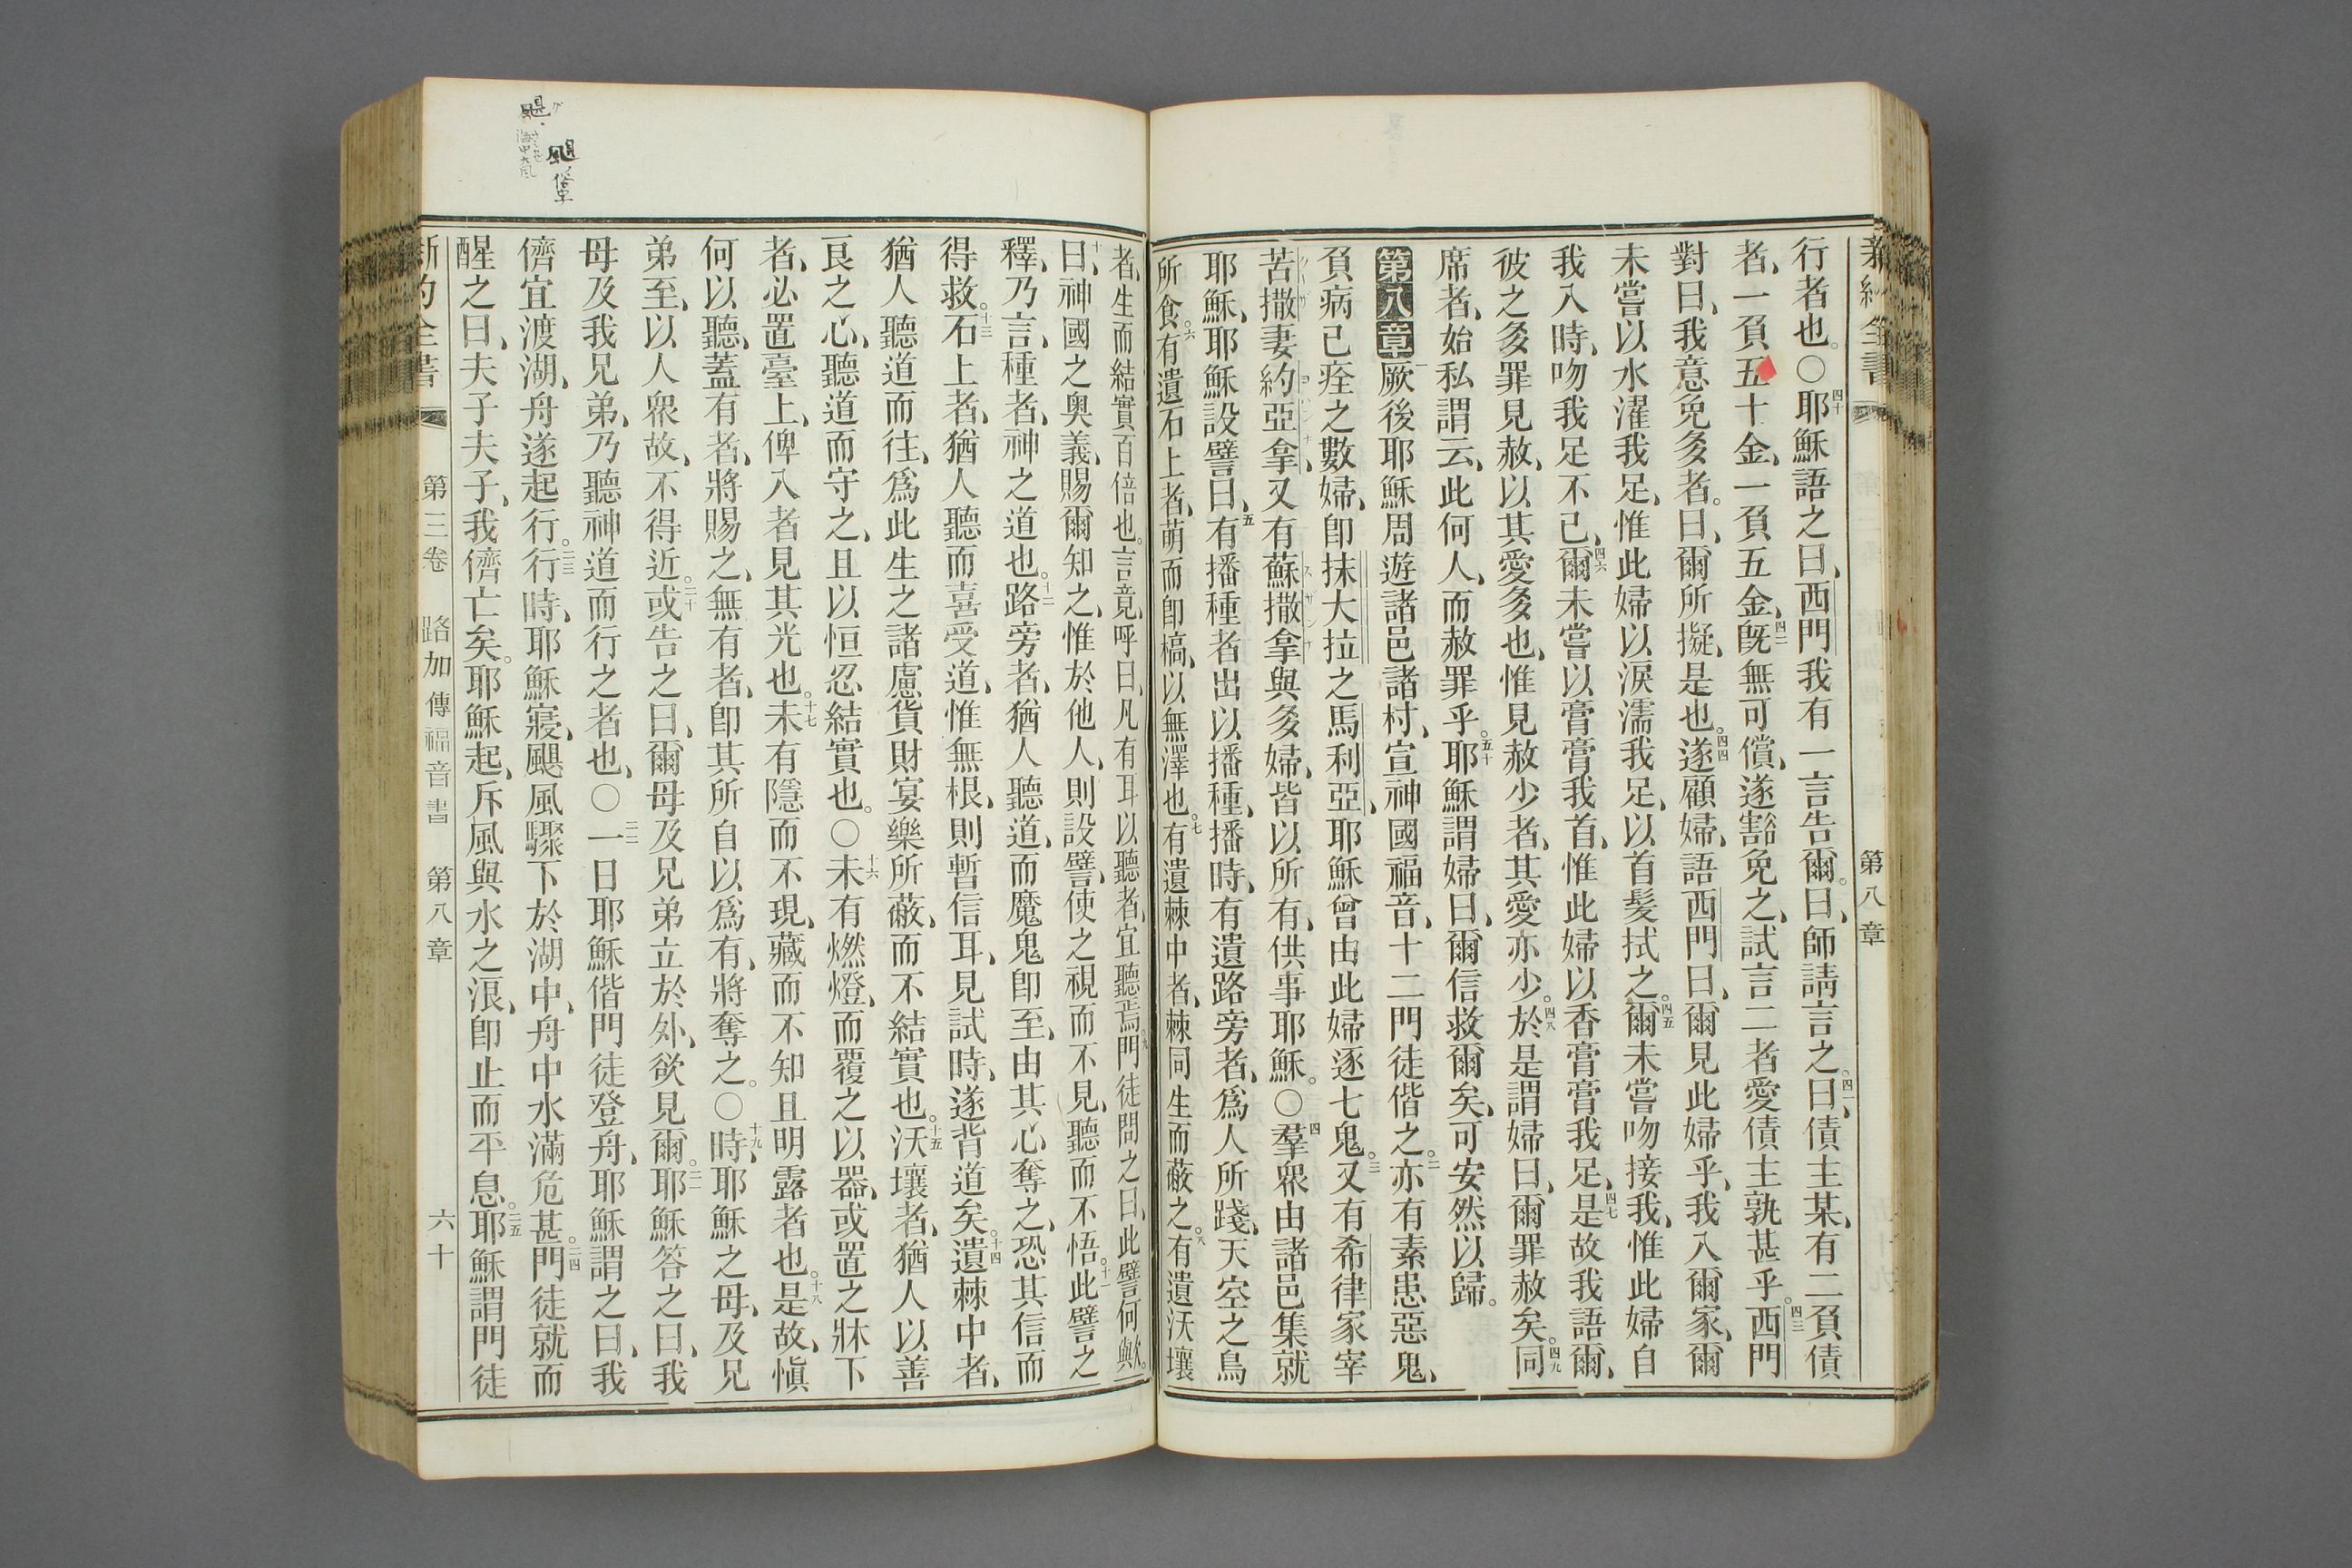 新約全書 第八章
行者也。〇四十耶穌語之曰、西門我有一言告爾。曰、師請言之。四一曰、債主某、有二負債
者、一負五十金、一負五金、四二旣無可償、遂豁免之、試言二者愛債主孰甚乎。四三西門
對曰、我意免多者。曰、爾所擬、是也。四四遂顧婦、語西門曰、爾見此婦乎、我入爾家、爾
未嘗以水濯我足、惟此婦以淚濡我足、以首髮拭之。四五爾未嘗吻接我、惟此婦自
我入時、吻我足不已、四六爾未嘗以膏膏我首、惟此婦以香膏膏我足、四七是故我語爾、
彼之多罪見赦、以其愛多也、惟見赦少者、其愛亦少。四八於是謂婦曰、爾罪赦矣。四九同
席者、始私謂云、此何人、而赦罪乎。五十耶穌謂婦曰、爾信救爾矣、可安然以歸。
第八章 一厥後耶穌周遊諸邑諸村、宣神國福音、十二門徒偕之。二亦有素患惡鬼、
負病已痊之數婦、卽抹大拉之馬利亞、耶穌曾由此婦逐七鬼。三又有希律家宰
苦撒妻約亞拿、又有蘇撒拿與多婦、皆以所有、供事耶穌。〇四羣衆由諸邑集就
耶穌、耶穌設譬曰、五有播種者出以播種、播時、有遺路旁者、爲人所踐、天空之鳥
所食。六有遺石上者、萌而卽槁、以無澤也。七有遺棘中者、棘同生而蔽之。八有遺沃壤
者、生而結實百倍也。言竟、呼曰、凡有耳以聽者、宜聽焉。九門徒問之曰、此譬何歟。
十曰、神國之奥義、賜爾知之、惟於他人、則設譬、使之視而不見、聽而不悟。十一此譬之
釋、乃言、種者、神之道也。十二路旁者、猶人聽道、而魔鬼卽至、由其心奪之、恐其信而
得救。十三石上者、猶人聽而喜受道、惟無根、則暫信耳、見試時、遂背道矣。十四遺棘中者、
猶人聽道而往、爲此生之諸慮貨財宴樂所蔽、而不結實也。十五沃壤者、猶人以善
良之心、聽道而守之、且以恒忍結實也。〇十六未有燃燈、而覆之以器、或置之牀下
者、必置臺上、俾入者見其光也。十七未有隱而不現、藏而不知且明露者也。十八是故、愼
何以聽、蓋有者、將賜之、無有者、卽其所自以爲有、將奪之。〇十九時、耶穌之母、及兄
弟至、以人衆故、不得近。二十或告之曰、爾母及兄弟立於外、欲見爾。二一耶穌答之曰、我
母及我兄弟、乃聽神道而行之者也、〇二二一日耶穌偕門徒登舟、耶穌謂之曰、我
儕宜渡湖、舟遂起行。二三行時、耶穌寢、颶風驟下於湖中、舟中水滿危甚。二四門徒就而
醒之曰、夫子夫子、我儕亡矣。耶穌起、斥風與水之浪、卽止而平息。二五耶穌謂門徒
新約全書 第三卷 路加傳福音書 第八章 六十